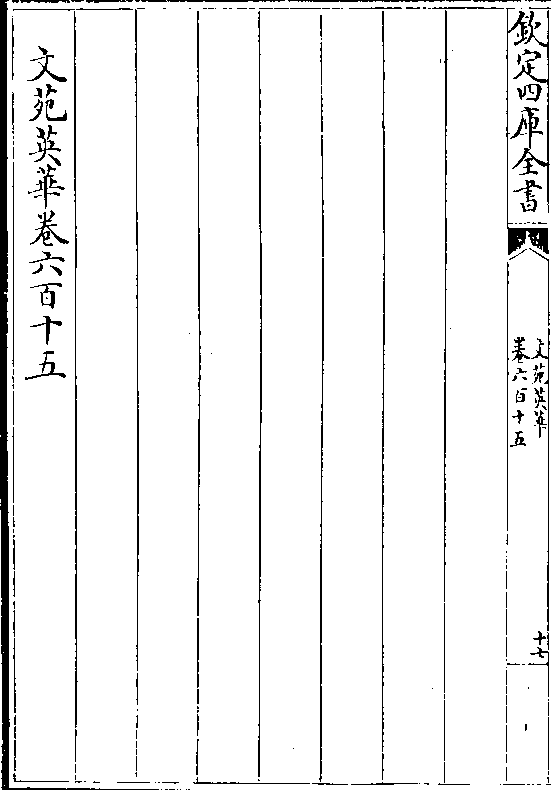 欽定四庫全書
文苑英華
卷六百十五
十七
文苑英華卷六百十五